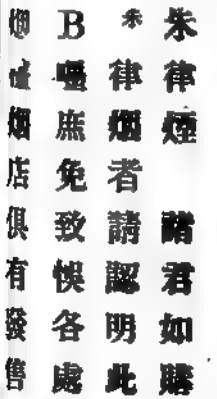 朱律煙 諸君如購
朱律烟者請認明此
B嘜庶免致悞各處
烟店俱有發售